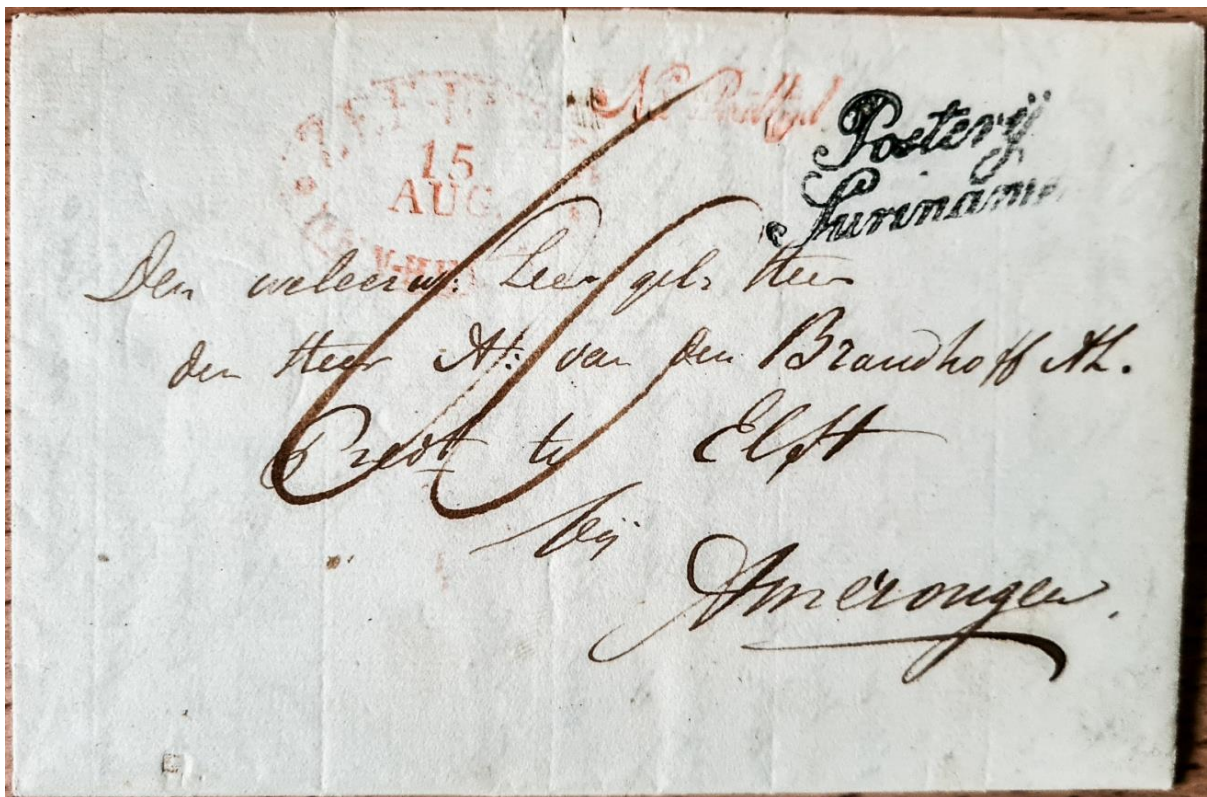 Na Posttijd
Posterij
Suriname
ZEE-
15
AUG.
Den weleerw: Zeer gelr Heer
den Heer A: van den Brandhoff AZ.
Predt te Elst
bij
Amerongen.